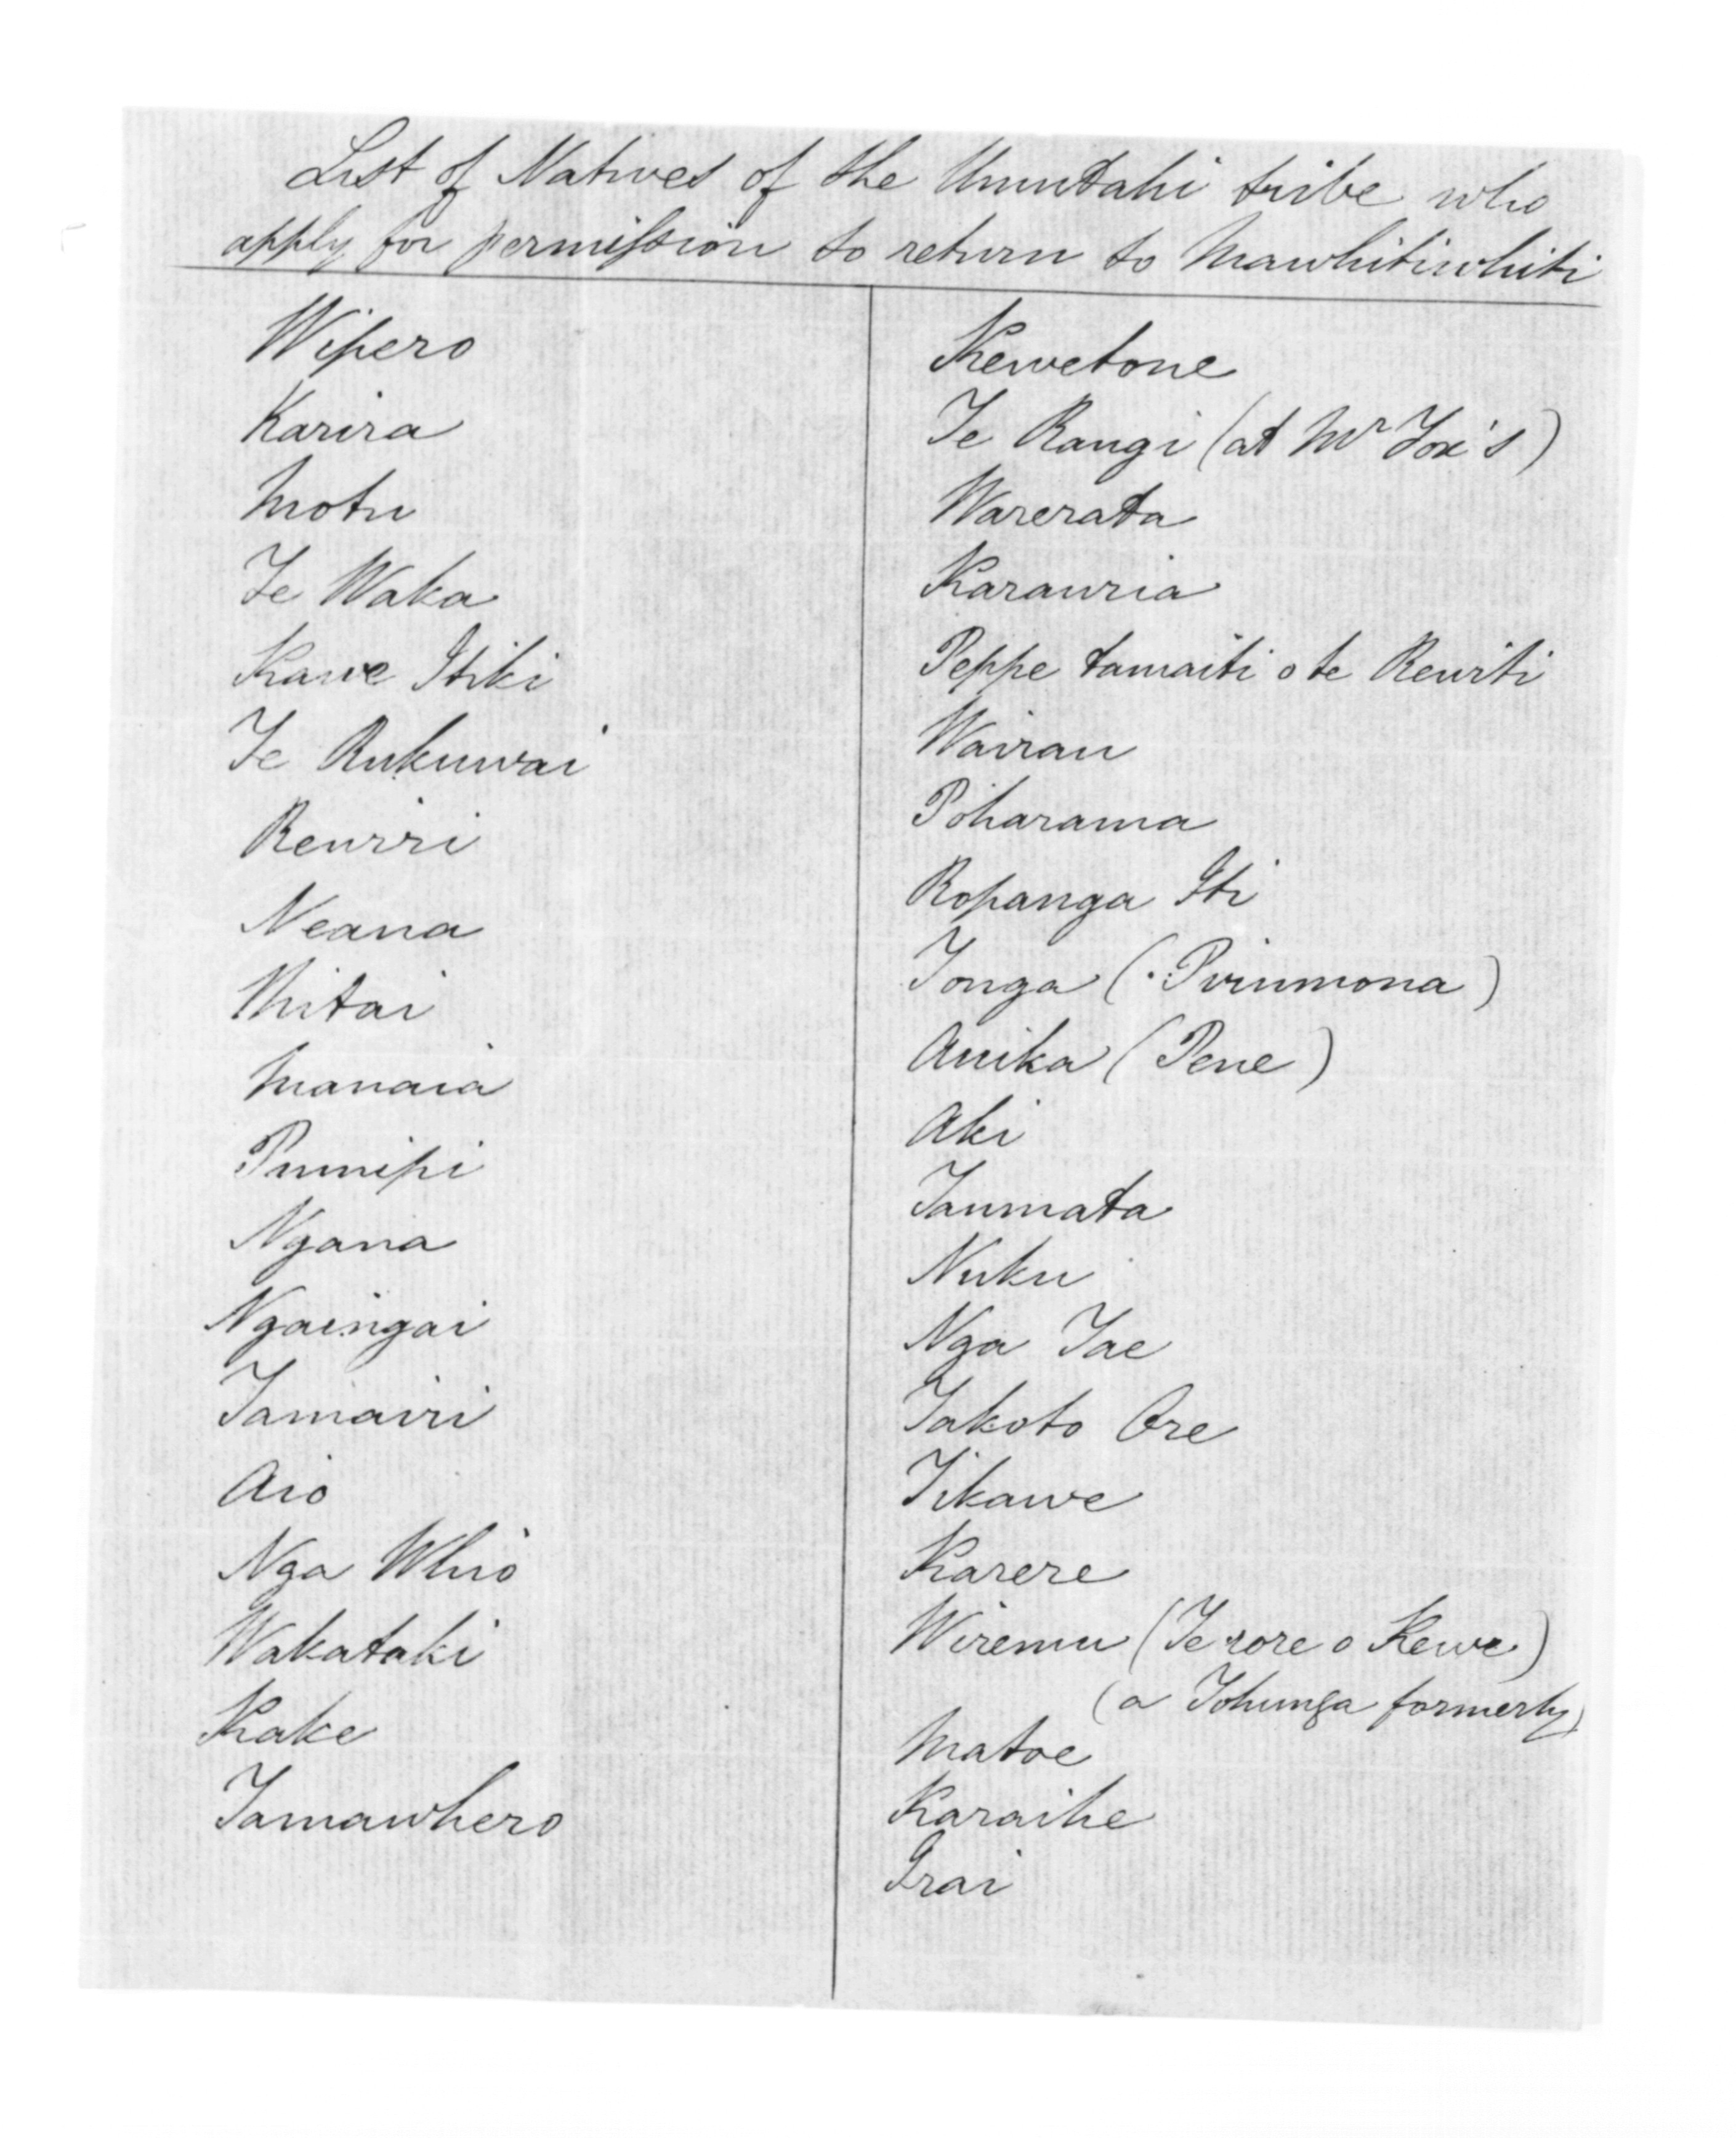 List of Natives of the Umutahi tribe who
apply for permission to return to Mawhitiwhiti
Wipero
Karira
Motu
Te Waka
Kawe Itiki
Te Rukuwai
Rewiri
Neana
Mitai
Manaia
Pumipi
Ngana
Ngaingai
Tamairi
Aio
Nga Whio
Wakataki
Kake
Tamawhero
Kewetone
Te Rangi (at Mr Fox's)
Warerata
Karauria
Peppe tamaiti o te Rewiti
Wairau
Poharama
Ropanga Iti
Tonga (Pirimona)
Anika (Pene)
Aki
Taumata
Nuku
Nga Tae
Takoto Ore
Tikawe
Karere
Wiremu (Te rore o Kewe)
(a Tohunga formerly)
Matoe
Karaihe
Irai